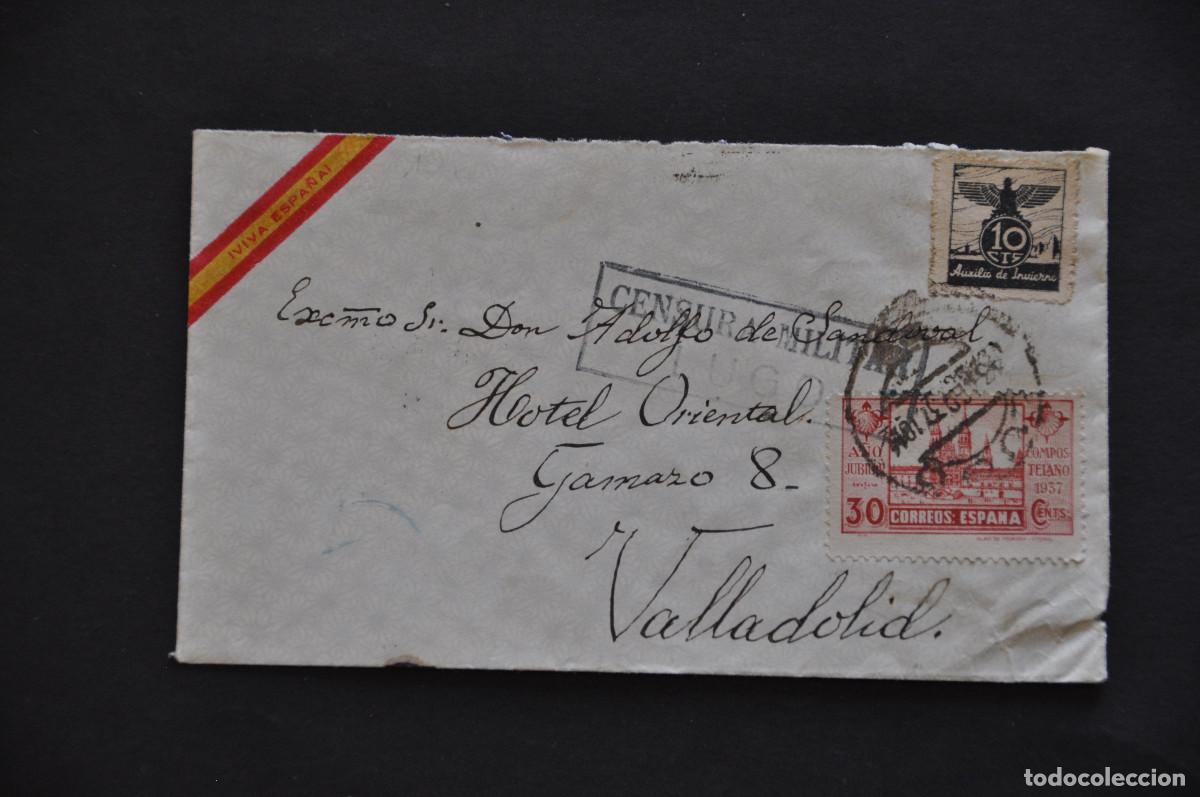 ¡VIVA ESPAÑA!
10
CTS
Auxilio de Invierno
CENSURA MILITAR
LUGO
Excmo Sr. Don Adolfo de Sandoval
Hotel Oriental.
Gamazo 8-
Valladolid.
AÑO JUBILAR COMPOSTELANO
1937
30 CORREOS: ESPAÑA CENTS.
todocoleccion